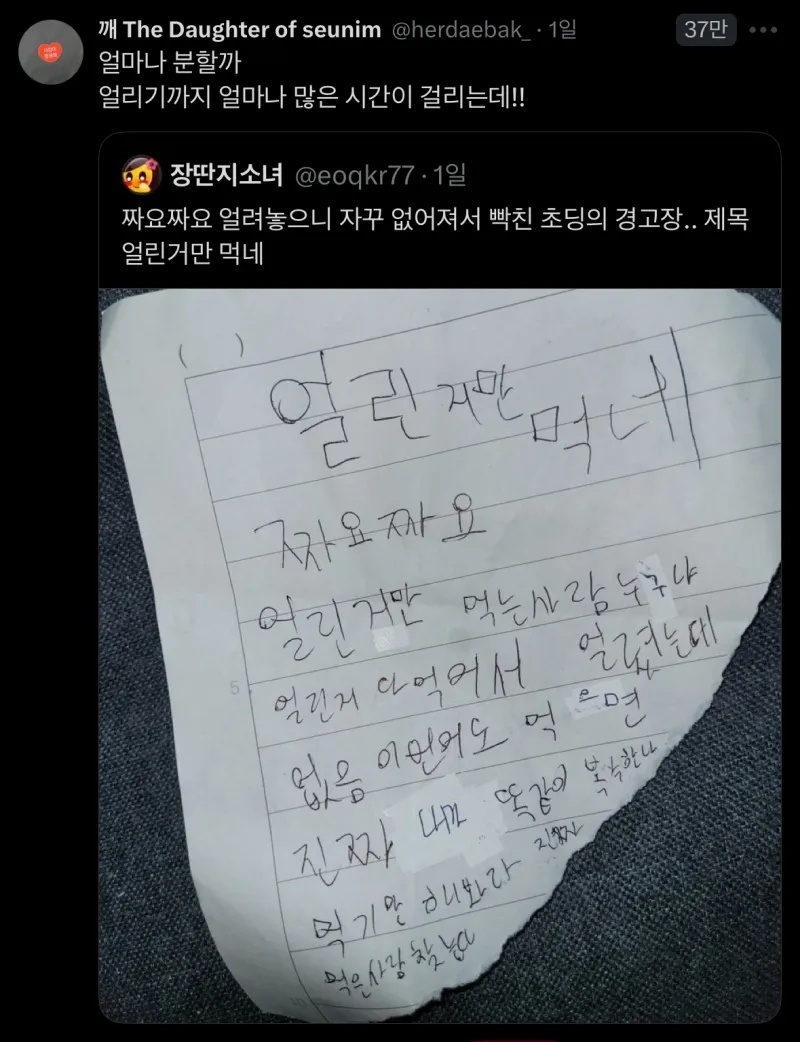 깨 The Daughter of seunim @herdaebak_ · 1일
37만
얼마나 분할까
얼리기까지 얼마나 많은 시간이 걸리는데!!
장딴지소녀 @eoqkr77 · 1일
짜요짜요 얼려놓으니 자꾸 없어져서 빡친 초딩의 경고장.. 제목
얼린거만 먹네
( )
얼린거만 먹네
짜요짜요
얼린거만 먹는사람누구냐
5
얼린거 다먹어서 얼렸는데
없음 이번에도 먹으면
진짜 내가 똑같이 복수한다
먹기만 해봐라 진짜
먹은사람찾는다
10